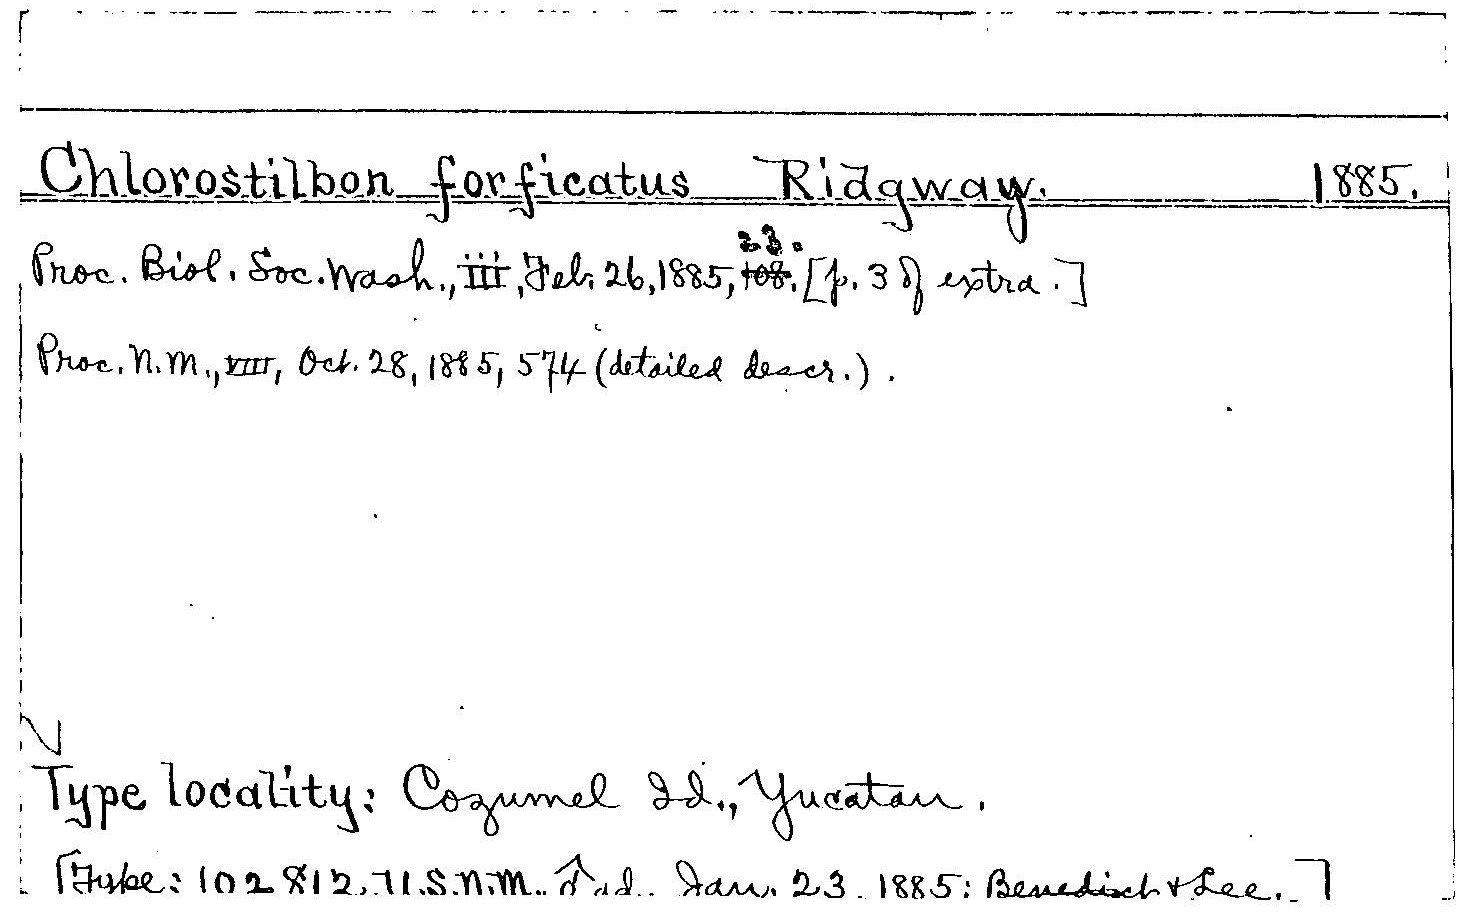 Chlorostilbon forficatus Ridgway. 1885.
23.
Proc. Biol. Soc. Wash., III, Feb. 26, 1885, 108. [p. 3 of extra.]
Proc. N.M., VIII, Oct. 28, 1885, 574 (detailed descr.).
Type locality: Cozumel Id., Yucatan.
[Type: 102812, U.S.N.M. ♂ ad. Jan. 23, 1885: Benedict & Lee.]